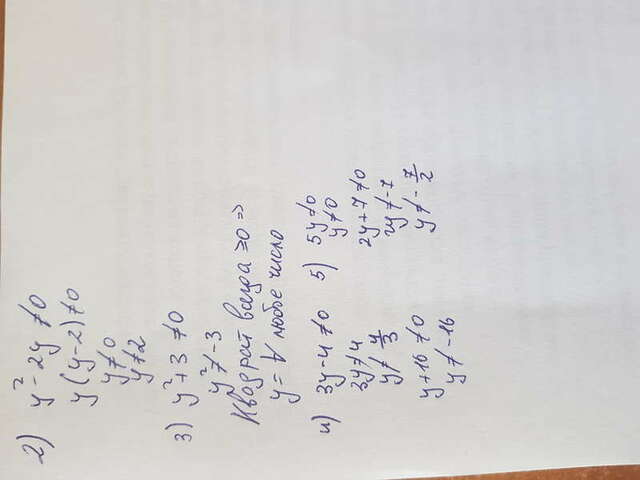 2) y² - 2y ≠ 0
y(y-2) ≠ 0
y ≠ 0
y ≠ 2
3) y² + 3 ≠ 0
y² ≠ -3
Квадрат всегда ≥0 =>
y = ∀ любое число
4) 3y - 4 ≠ 0
3y ≠ 4
y ≠ 4/3
y + 16 ≠ 0
y ≠ -16
5) 5y ≠ 0
y ≠ 0
2y + 7 ≠ 0
2y ≠ -7
y ≠ -7/2